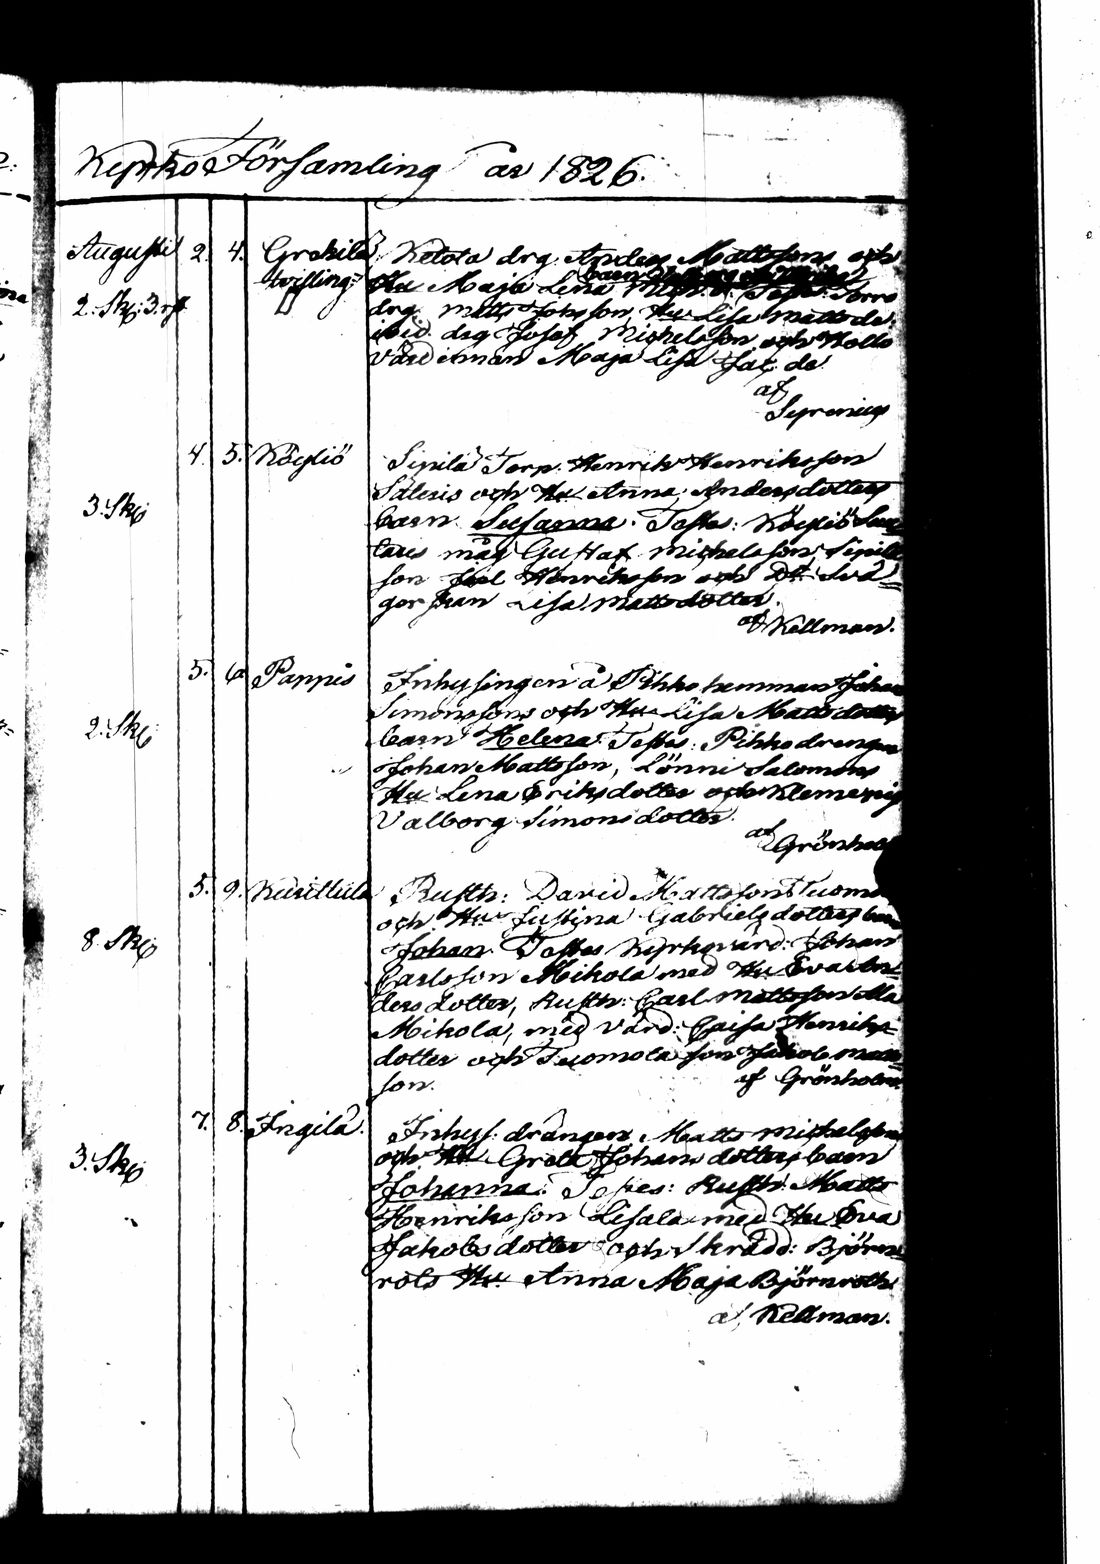 Kyrko Församling år 1826.
Augusti 2. 4. Grekilä Ketola drg Anders Mattsons och
tvilling- Hu Maja Lena
2. Sk: 3. rf drg Matts Johsson, Hu Lisa Matts de
ibid drg Josef Michelsson och Kollo
värd:eman Maja Lisa Jac. de
af
Syrenius
4. 5. Köyliö Sipilä Torp. Henrik Henriksson
Saleris och Hu Anna Andersdotters
3. Sk barn Susanna. Testes: Köyliö
måg Gustaf Michelsson, Sipilä
son Joel Henriksson och D:o Svä-
gerskan Lisa Mattsdotter.
af Kellman.
5. 6. Pappis Inhysingen å Pihko hemman Johan
Simonssons och Hu Lisa Mattsdotters
2. Sk barn Helena. Testes: Pihko drengen
Johan Mattsson, Lönni Salomons
Hu Lena Eriksdotter och
Valborg Simonsdotter.
af
Grönholm
5. 9. Kuoitula Rusth: David Mattssons Tuomo
och Hu Justina Gabrielsdotters barn
8. Sk Johan. Testes Kyrkovärd: Johan
Carlsson Mikola med Hu Eva An-
dersdotter, Rusth: Carl Mattsson Ala
Mikola, med värd: Caisa Henriks-
dotter och Tuomola son Jakob Matts-
son. af Grönholm
7. 8. Ingilä. Inhys: drängen Matts Michelsons
och Hu Greta Johansdotters barn
3. Sk Johanna. Testes: Rusth: Matts
Henriksson Lisala med Hu Eva
Jakobsdotter och Skrädd: Björn-
rots Hu Anna Maja Björnroth
af Kellman.